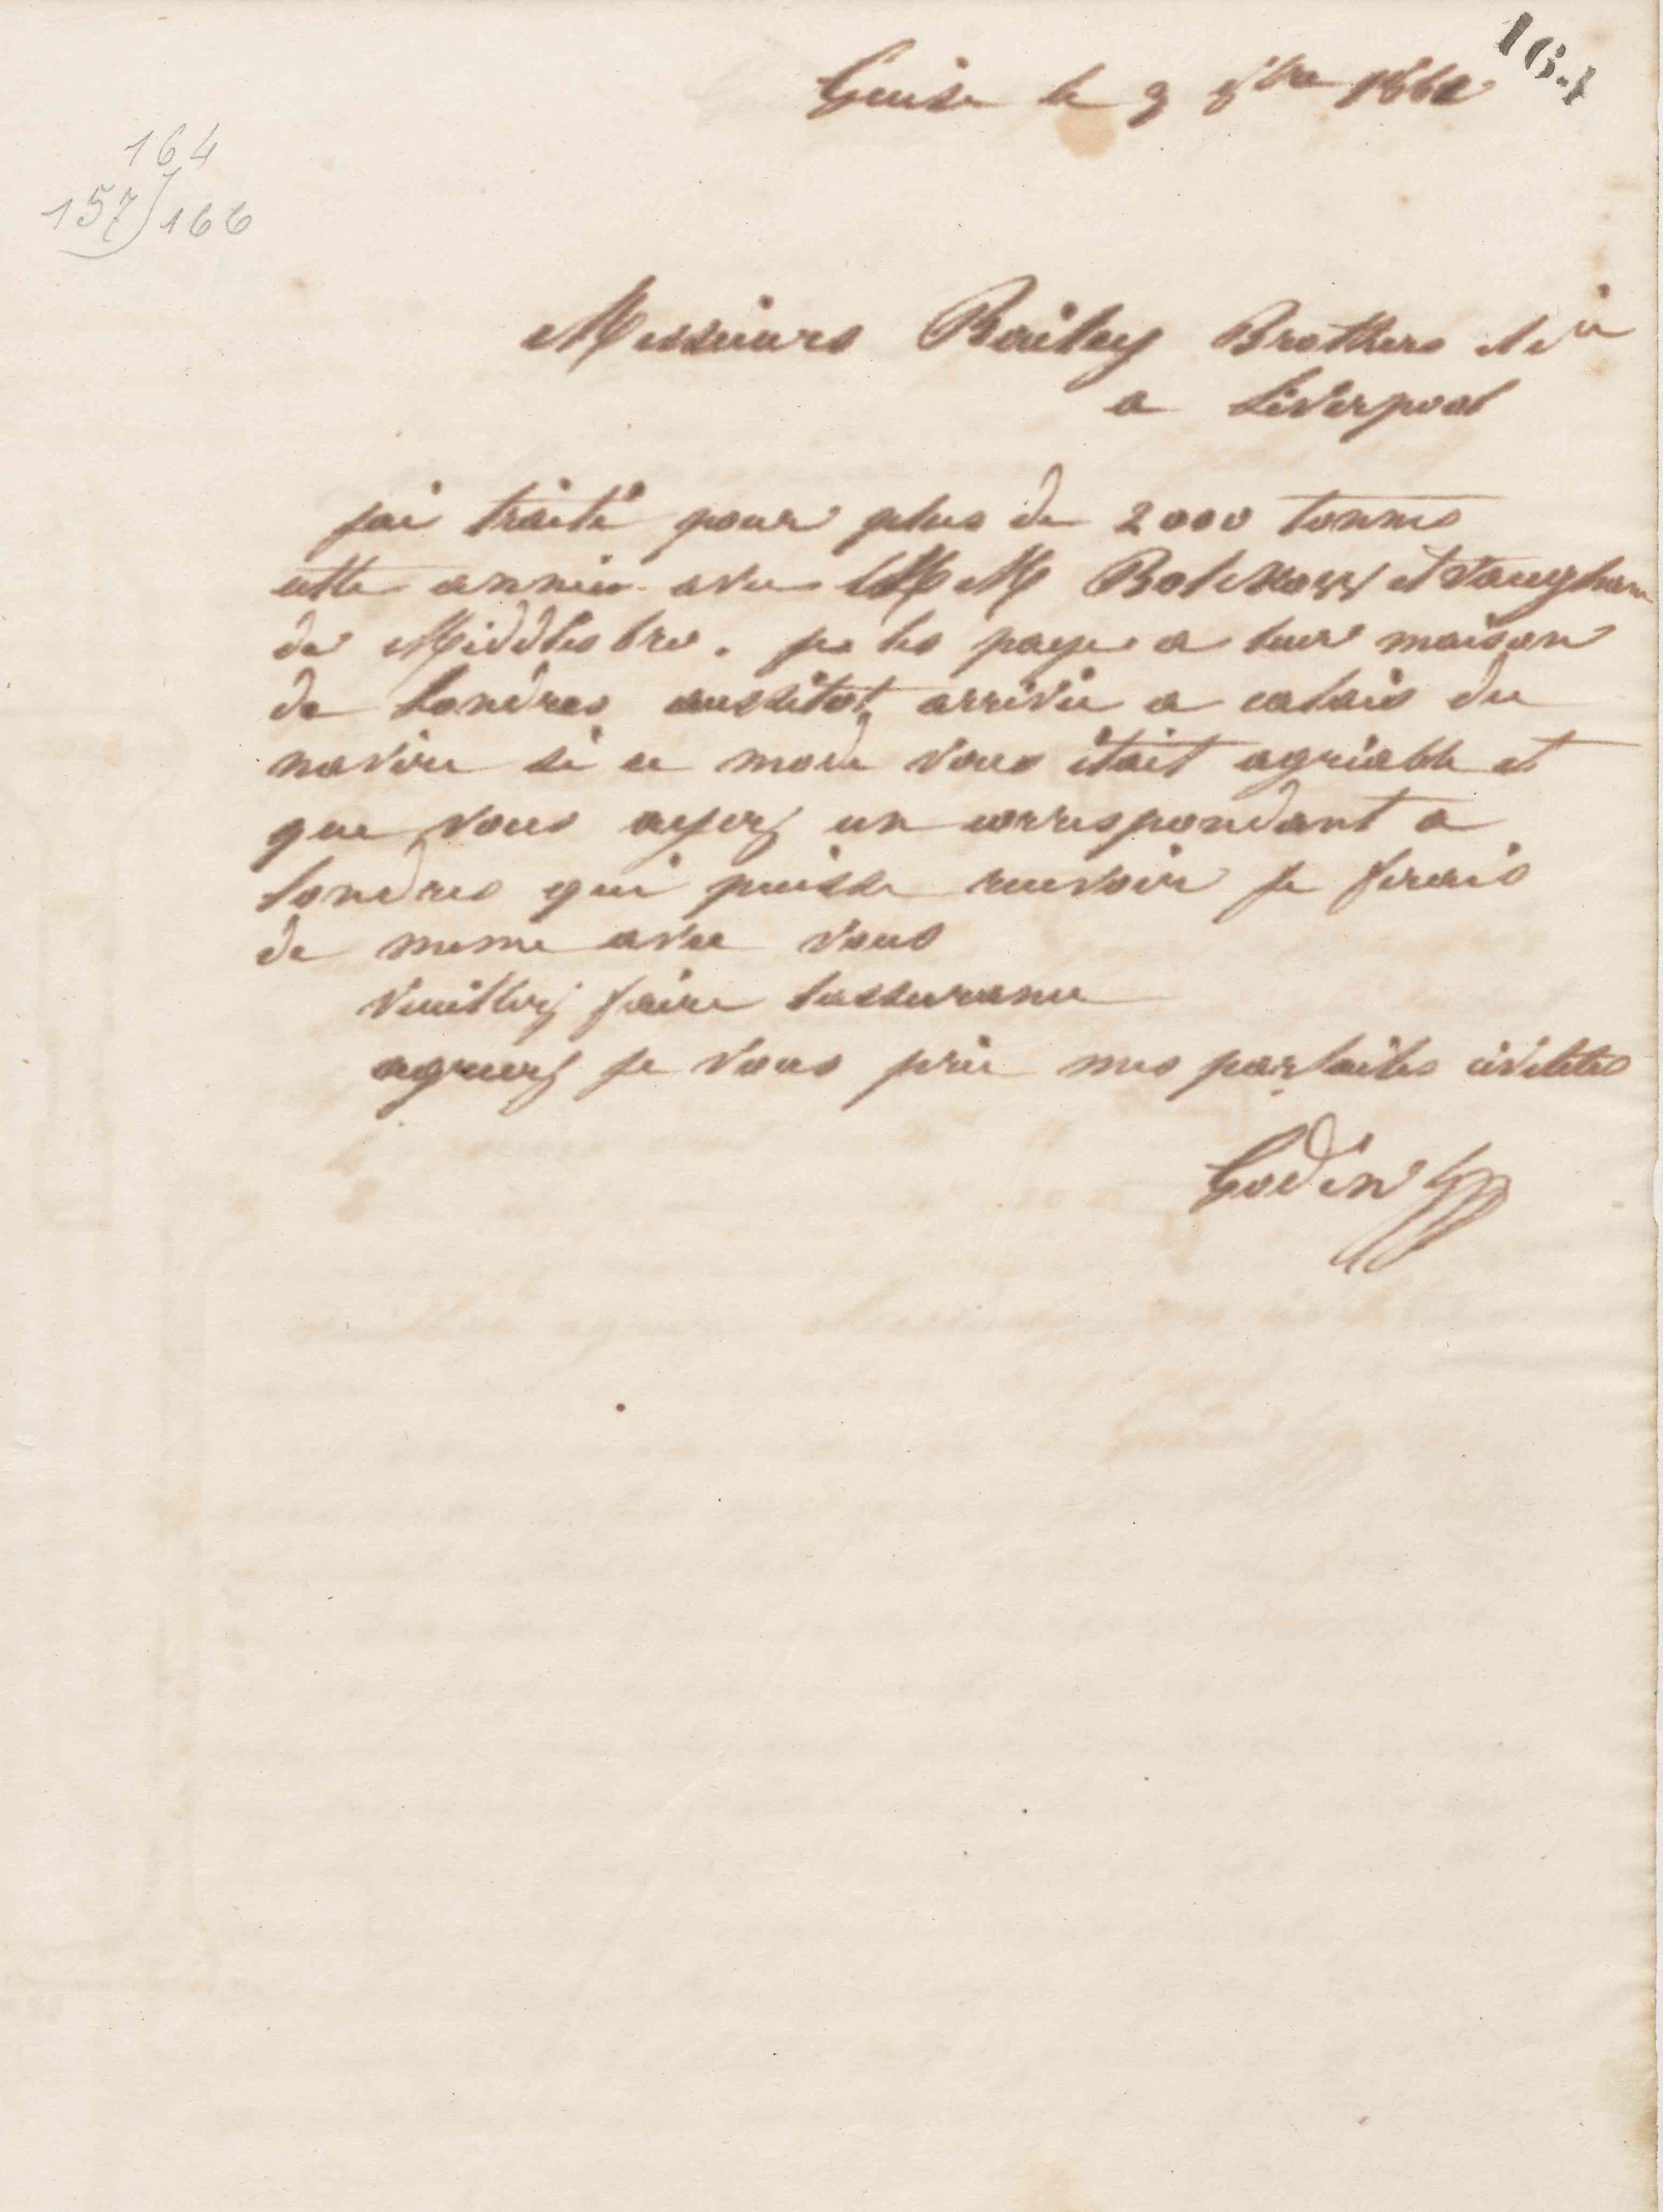 164
Guise le 3 8bre 1862
164
157/166
Messieurs Bailey Brothers et Cie
a Liverpool
jai traité pour plus de 2000 tonnes
cette année avec MM Bolckow et Vaugham
de Middlesbro. je les paye a leur maison
de Londres aussitot arrivée a calais du
navire si ce mode vous était agréable et
que vous ayez un correspondant a
Londres qui puisse recevoir je ferais
de meme avec vous
Veuillez faire lassurance
agreez je vous prie mes parfaites civilités
Godin